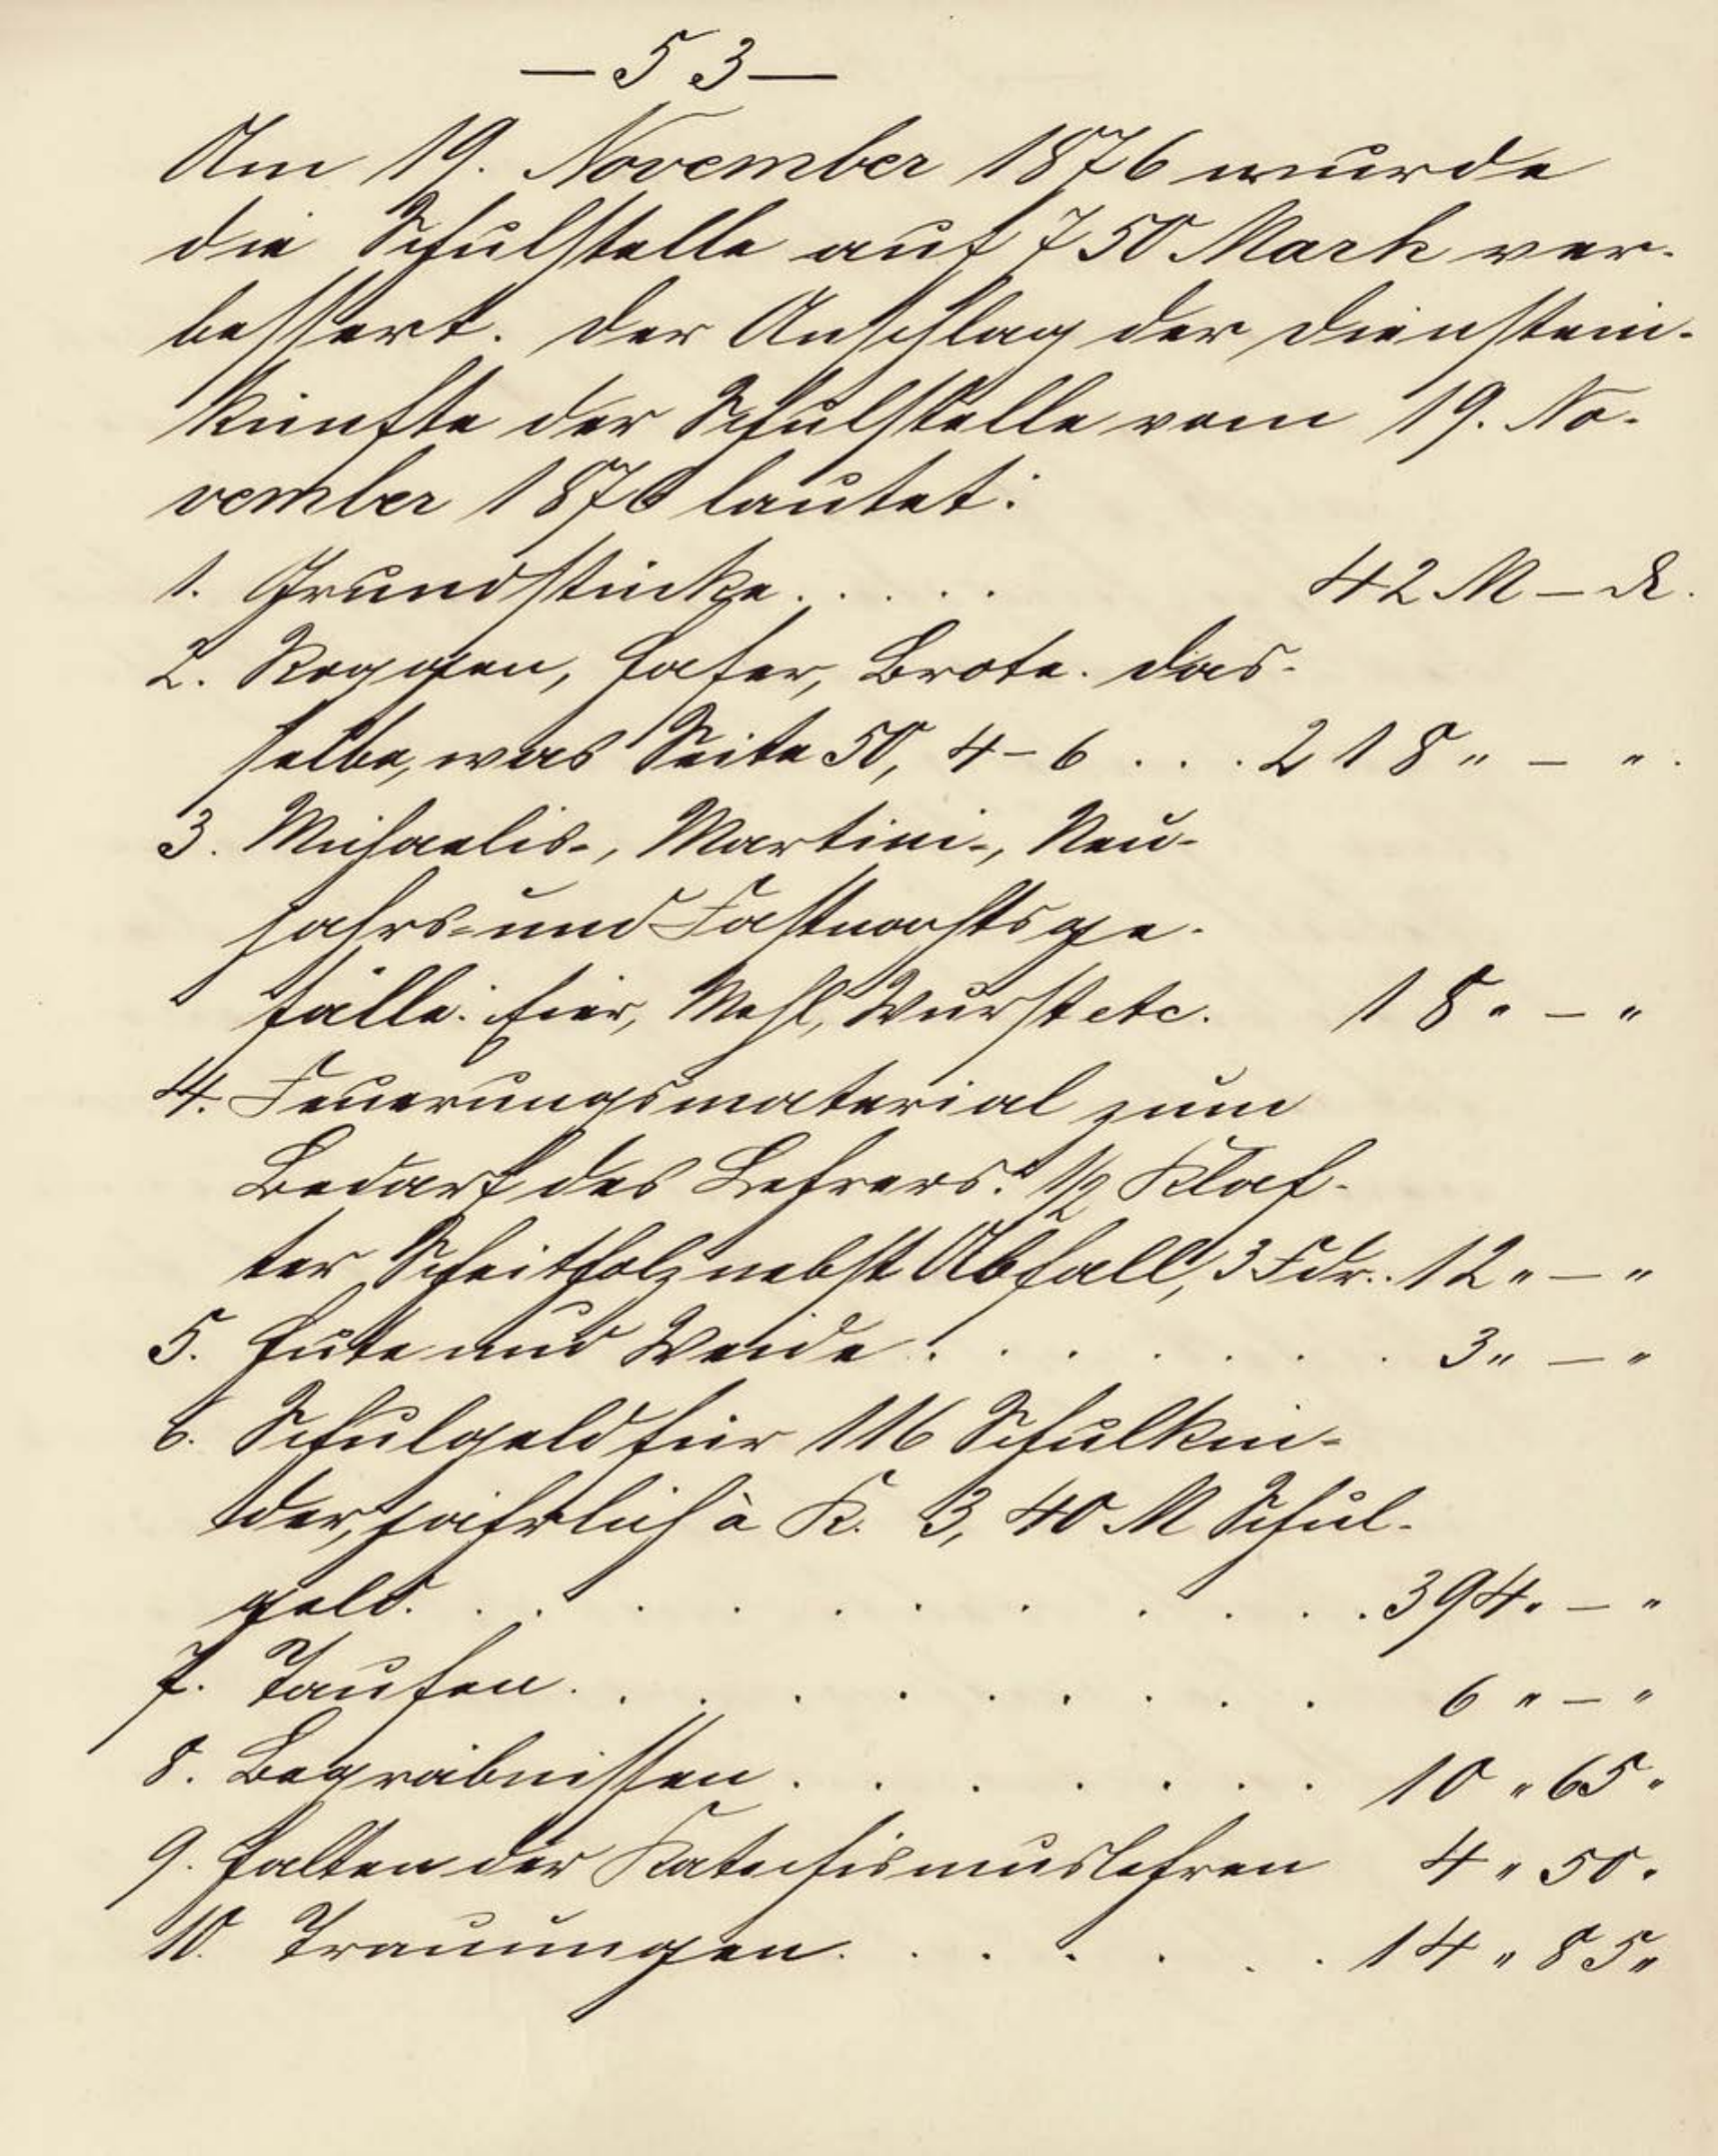 — 53 —
Am 19. November 1876 wurde
die Schulstelle auf 750 Mark ver-
bessert. Der Anschlag der Dienstein-
künfte der Schulstelle vom 19. No-
vember 1876 lautet:
1. Grundstücke . . . . . 42 M — ₰.
2. Roggen, Hafer, Brote. Das-
selbe, was Seite 50, 4–6 . . . 218 „ — „.
3. Michaelis-, Martini-, Neu-
jahrs- und Fastnachtsge-
fälle: Eier, Mehl, Wurst etc. 18 „ — „
4. Feuerungsmaterial zum
Bedarf des Lehrers: 1/2 Klaf-
ter Scheitholz nebst Abfall, 3 Fdr.. 12 „ — „
5. Hute und Weide . . . . . . . 3 „ — „
6. Schulgeld für 116 Schulkin-
der, jährlich à K. 3,40 M Schul-
geld. . . . . . . . . . . 394 „ — „
7. Taufen . . . . . . . . . . 6 „ — „
8. Begräbnissen . . . . . . . 10 „ 65 „
9. Halten der Katechismuslehren 4 „ 50 „
10. Trauungen . . . . . . 14 „ 85 „